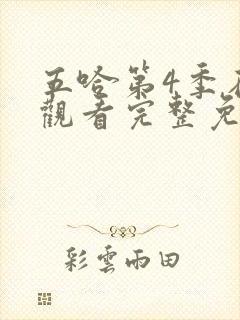 五哈第4季
觀看完整免
彩雲雨田